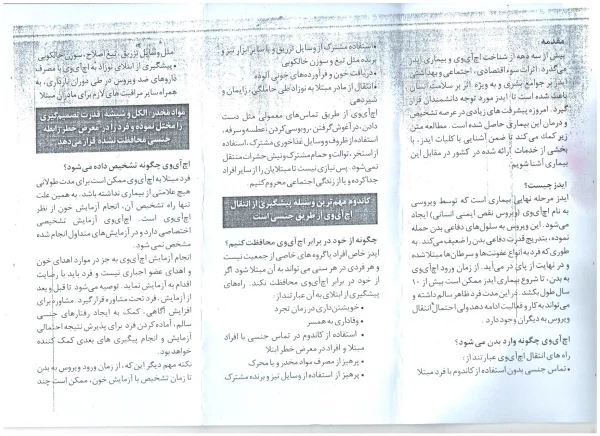 مقدمه:
بیش از سه دهه از شناخت اچ‌آی‌وی و بیماری ایدز
می‌گذرد. اثرات سوء اقتصادی، اجتماعی و بهداشتی
ایدز بر جوامع بشری و به ویژه اثر بر سلامت انسان
باعث شده است تا ایدز مورد توجه دانشمندان قرار
گیرد. امروزه پیشرفت های زیادی در عرصه تشخیص
و درمان این بیماری حاصل شده است. مطالعه متن
زیر کمک می‌کند تا ضمن آشنایی با کلیات ایدز، با
بخشی از خدمات ارائه شده در کشور در مقابل این
بیماری آشنا شویم.
ایدز چیست؟
ایدز مرحله نهایی بیماری است که توسط ویروسی
به نام اچ‌آی‌وی (ویروس نقص ایمنی انسانی) ایجاد
می‌شود. این ویروس به سلول‌های دفاعی بدن حمله
نموده، بتدریج قدرت دفاعی بدن را ضعیف می‌کند. به
طوری که فرد به انواع عفونت‌ها و سرطان‌ها مبتلا شده
و در نهایت از پای در می‌آید. از زمان ورود اچ‌آی‌وی
به بدن، تا شروع بیماری ایدز ممکن است بیش از ۱۰
سال طول بکشد. در این مدت فرد ظاهر سالم داشته و
می‌تواند به کار و فعالیت ادامه دهد ولی احتمال انتقال
ویروس به دیگران وجود دارد.
اچ‌آی‌وی چگونه وارد بدن می‌شود؟
راه های انتقال اچ‌آی‌وی عبارتند از:
• تماس جنسی بدون استفاده از کاندوم با فرد مبتلا
• استفاده مشترک از وسایل تزریق و یا سایر ابزار تیز و
برنده مثل تیغ و سوزن خالکوبی
• دریافت خون و فرآورده‌های خونی آلوده
• انتقال از مادر مبتلا به نوزاد طی حاملگی، زایمان و
شیردهی
اچ‌آی‌وی از طریق تماس‌های معمولی مثل دست
دادن، در آغوش گرفتن، روبوسی کردن، عطسه و سرفه،
استفاده از ظروف و وسایل غذاخوری مشترک، استفاده
از استخر، توالت و حمام مشترک و نیش حشرات منتقل
نمی‌شود. پس نیازی نیست تا مبتلایان را از سایر افراد
جدا کرده و یا از زندگی اجتماعی محروم کنیم.
کاندوم مهم‌ترین وسیله پیشگیری از انتقال
اچ‌آی‌وی از طریق جنسی است
چگونه از خود در برابر اچ‌آی‌وی محافظت کنیم؟
ایدز خاص افراد یا گروه‌های خاصی از جمعیت نیست
و هر فردی در هر سنی می تواند به آن مبتلا شود اگر
از خود در برابر اچ‌آی‌وی محافظت نکند. راه‌های
پیشگیری از ابتلای به آن عبارتند از:
• خویشتن‌داری در زمان تجرد
• وفاداری به همسر
• استفاده از کاندوم در تماس جنسی با افراد
مبتلا و افراد در معرض خطر ابتلا
• پرهیز از مصرف مواد مخدر و یا محرک
• پرهیز از استفاده از وسایل تیز و برنده مشترک
مثل وسایل تزریق، تیغ اصلاح، سوزن خالکوبی
• پیشگیری از ابتلای نوزاد به اچ‌آی‌وی با مصرف
داروهای ضد ویروس در طی دوران بارداری، به
همراه سایر مراقبت های لازم برای مادران مبتلا
مواد مخدر، الکل و شیشه، قدرت تصمیم‌گیری
را مختل نموده و فرد را در معرض خطر رابطه
جنسی محافظت نشده قرار می‌دهد
اچ‌آی‌وی چگونه تشخیص داده می‌شود؟
فرد مبتلا به اچ‌آی‌وی ممکن است برای مدت طولانی
هیچ علامتی از بیماری نداشته باشد. به همین علت
تنها راه تشخیص آن، انجام آزمایش خون از نظر
اچ‌آی‌وی است. اچ‌آی‌وی آزمایش تشخیصی
اختصاصی دارد و در آزمایش‌های متداول انجام شده
مشخص نمی‌شود.
انجام آزمایش اچ‌آی‌وی به جز در موارد اهدای خون
و اهدای عضو اجباری نیست و فرد باید با رضایت
اقدام به آزمایش نماید. توصیه می‌شود تا قبل و بعد
از آزمایش، فرد تحت مشاوره قرار گیرد. مشاوره برای
افزایش آگاهی، کمک به ایجاد رفتارهای جنسی
سالم، آماده کردن فرد برای پذیرش نتیجه احتمالی
آزمایش و انجام پیگیری های بعدی کمک کننده
خواهد بود.
نکته مهم دیگر این که، از زمان ورود ویروس به بدن
تا زمان تشخیص با آزمایش خون، ممکن است چند